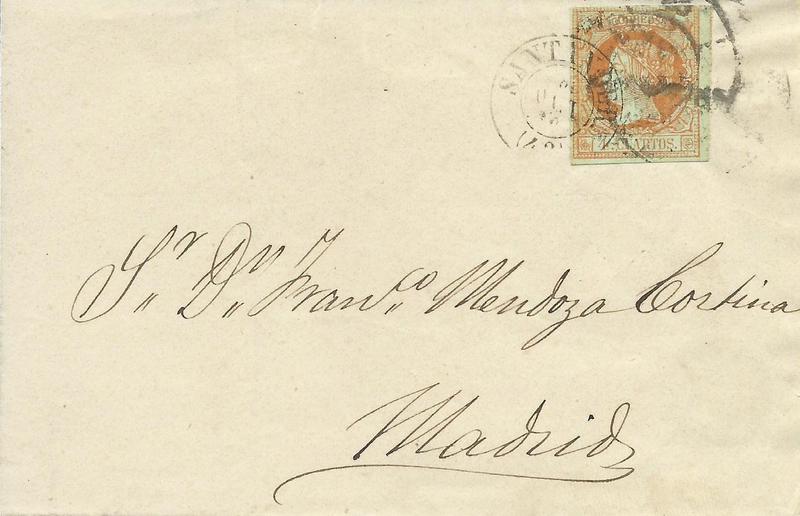 CORREOS
4 CUARTOS.
Sr. Dn. Franco. Mendoza Cortina
Madrid